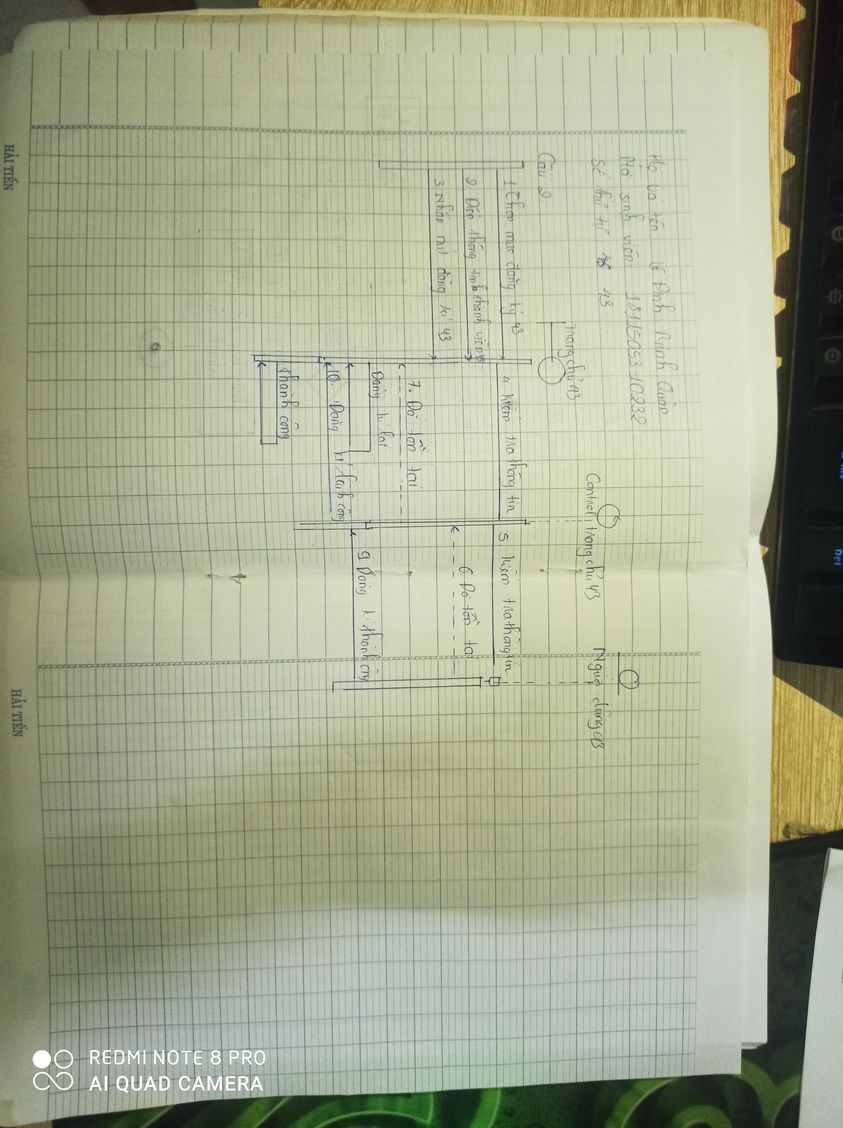 Họ và tên Lê Đình Minh Quân
Mã sinh viên: 1811505310232
Số thứ tự 43
Câu 2
Trang chủ 43
Control trang chủ 43
Người dùng 43
1. Chọn mục đăng ký 43
2. Điền thông tin thành viên 43
3. Nhấn nút đăng kí 43
4. kiểm tra thông tin
5 kiểm tra thông tin
6. Đã tồn tại
7. Đã tồn tại
Đăng kí lại
9. Đăng kí thành công
10. Đăng kí thành công
thành công
HẢI TIẾN
HẢI TIẾN
REDMI NOTE 8 PRO
AI QUAD CAMERA